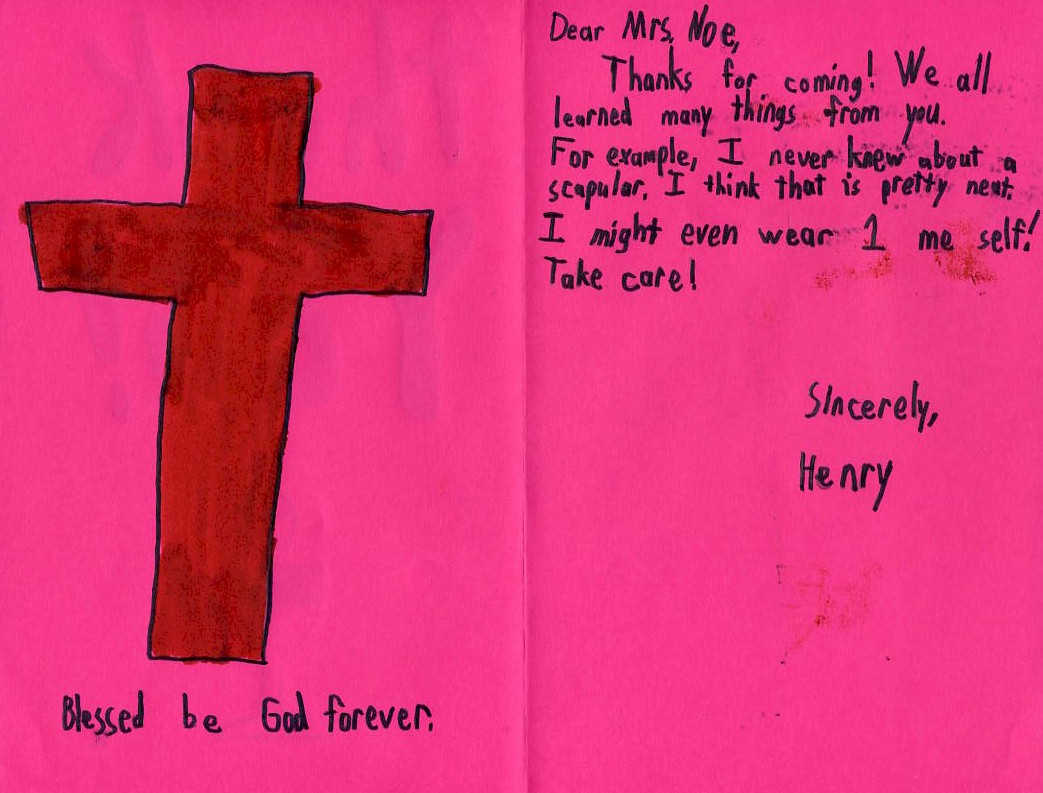 Blessed be God forever.
Dear Mrs. Noe,
Thanks for coming! We all
learned many things from you.
For example, I never knew about a
scapular. I think that is pretty neat.
I might even wear 1 me self!
Take care!
Sincerely,
Henry